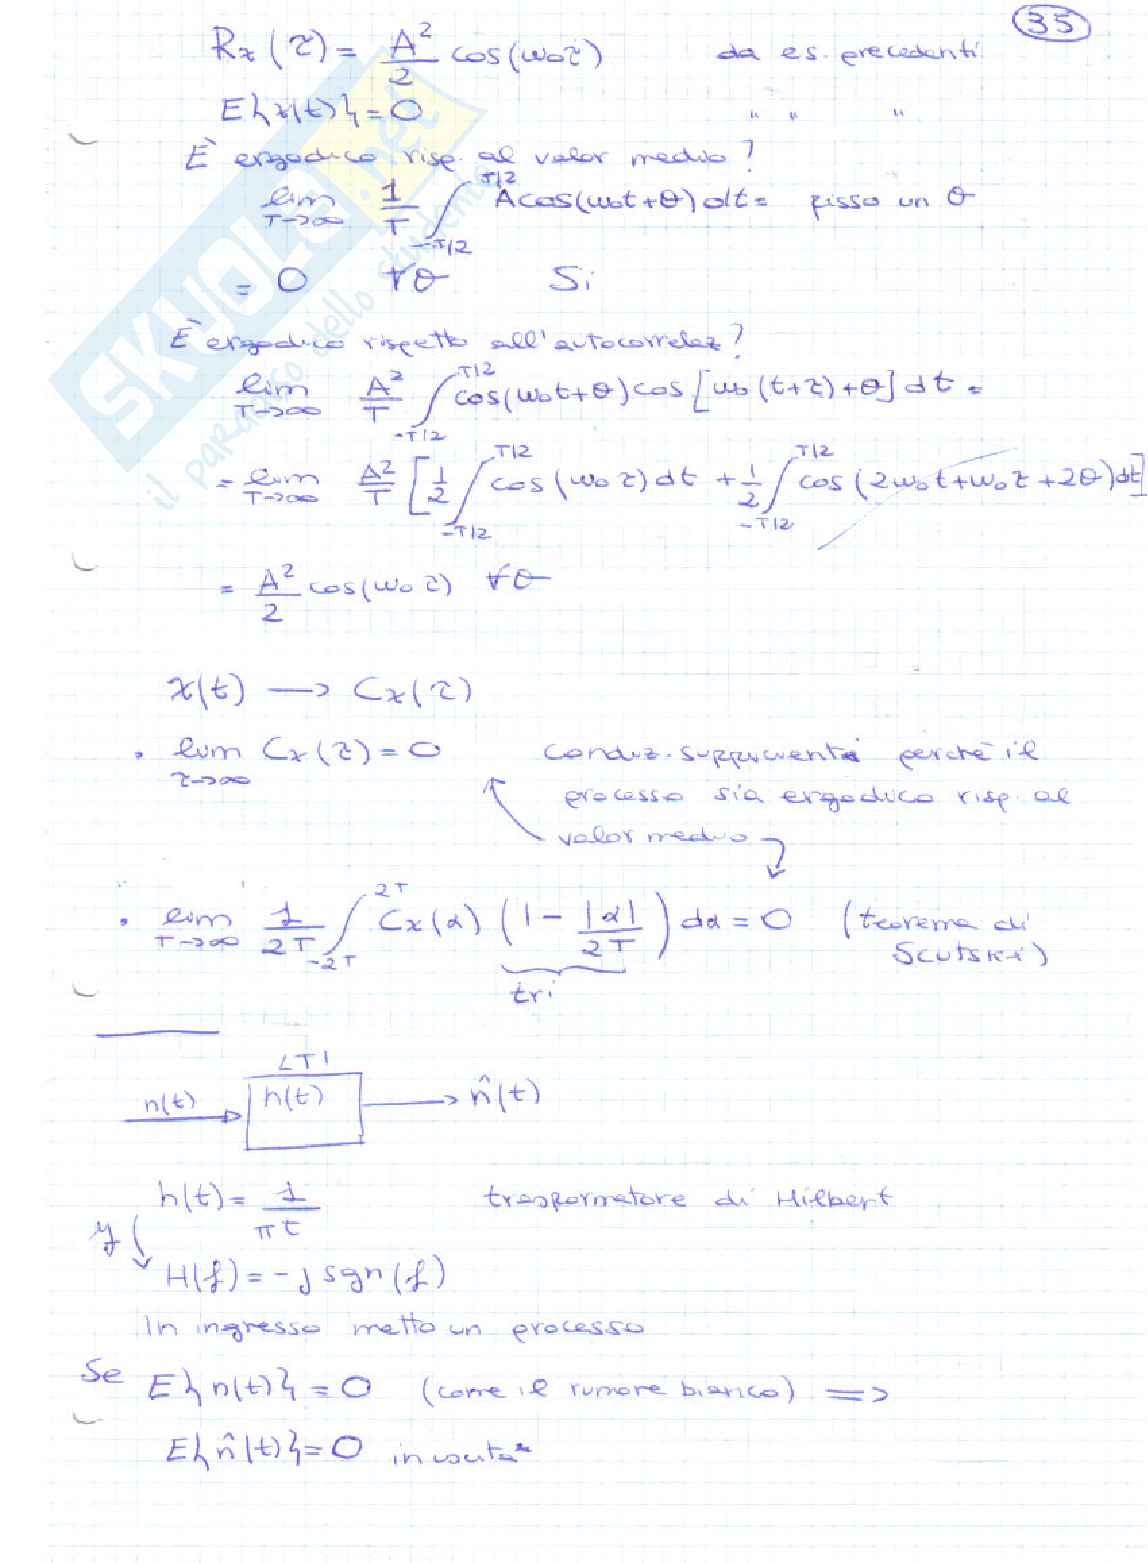 35
Rx(τ) = A²/2 cos(ω₀τ) da es. precedenti
E{x(t)} = 0 " " "
È ergodico risp. al valor medio?
lim T→∞ 1/T ∫_{-T/2}^{T/2} A cos(ω₀t+θ) dt = fisso un θ
= 0 ∀θ Si
È ergodico rispetto all'autocorrelaz?
lim T→∞ A²/T ∫_{-T/2}^{T/2} cos(ω₀t+θ) cos[ω₀(t+τ)+θ] dt =
= lim T→∞ A²/T [1/2 ∫_{-T/2}^{T/2} cos(ω₀τ) dt + 1/2 ∫_{-T/2}^{T/2} cos(2ω₀t+ω₀τ+2θ) dt]
= A²/2 cos(ω₀τ) ∀θ
x(t) → Cx(τ)
• lim τ→∞ Cx(τ) = 0 condiz. sufficiente perchè il
processo sia ergodico risp. al
valor medio
• lim T→∞ 1/2T ∫_{-2T}^{2T} Cx(α) (1 - |α|/2T) dα = 0 (teorema di
Scutski)
tri
LTI
n(t) h(t) → n̂(t)
h(t) = 1/πt trasformatore di Hilbert
H(f) = -j sgn(f)
In ingresso metto un processo
Se E{n(t)} = 0 (come il rumore bianco) ⇒
E{n̂(t)} = 0 in uscita
SKUOLA.net
il paradiso dello studente